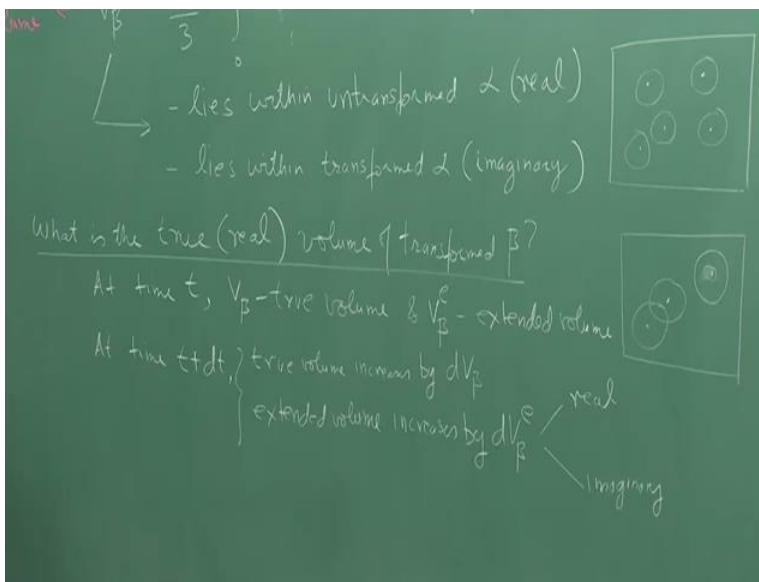 V_β^e 3
- lies within untransformed α (real)
- lies within transformed α (imaginary)
What is the true (real) volume of transformed β?
At time t, V_β - true volume & V_β^e - extended volume
At time t+dt, true volume increases by dV_β
extended volume increases by dV_β^e
real
imaginary